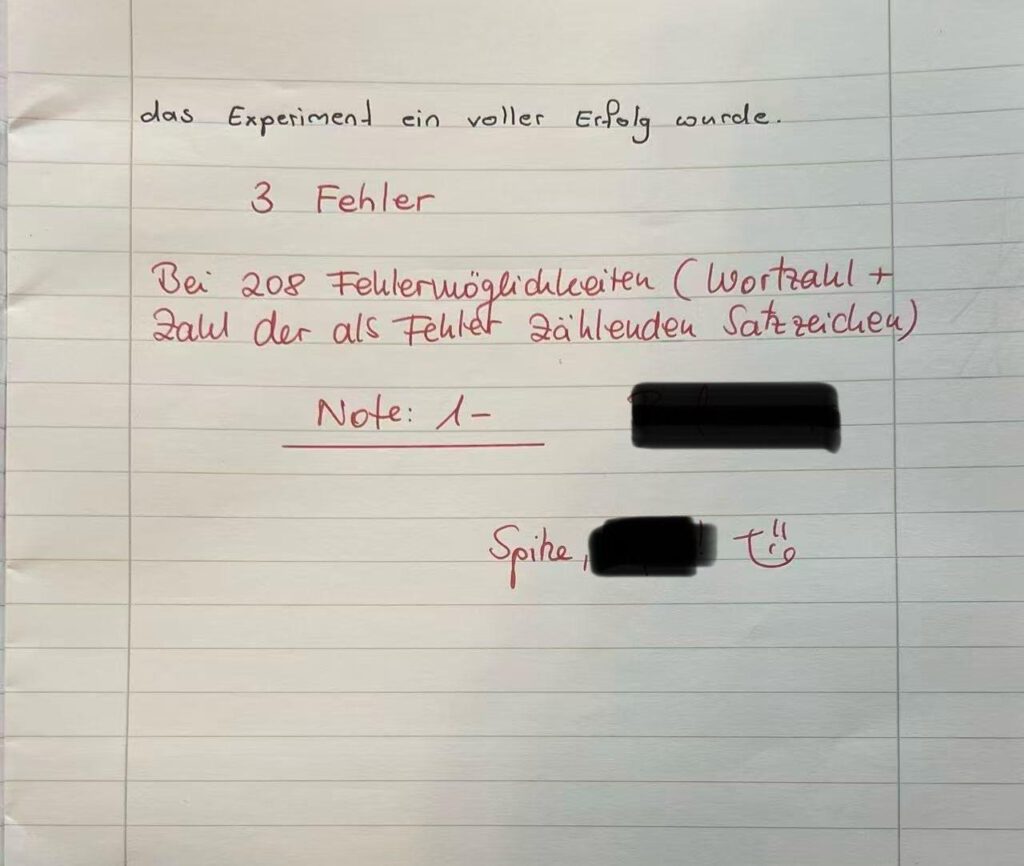 das Experiment ein voller Erfolg wurde.
3 Fehler
Bei 208 Fehlermöglichkeiten (Wortzahl +
Zahl der als Fehler zählenden Satzzeichen)
Note: 1-
Spitze,